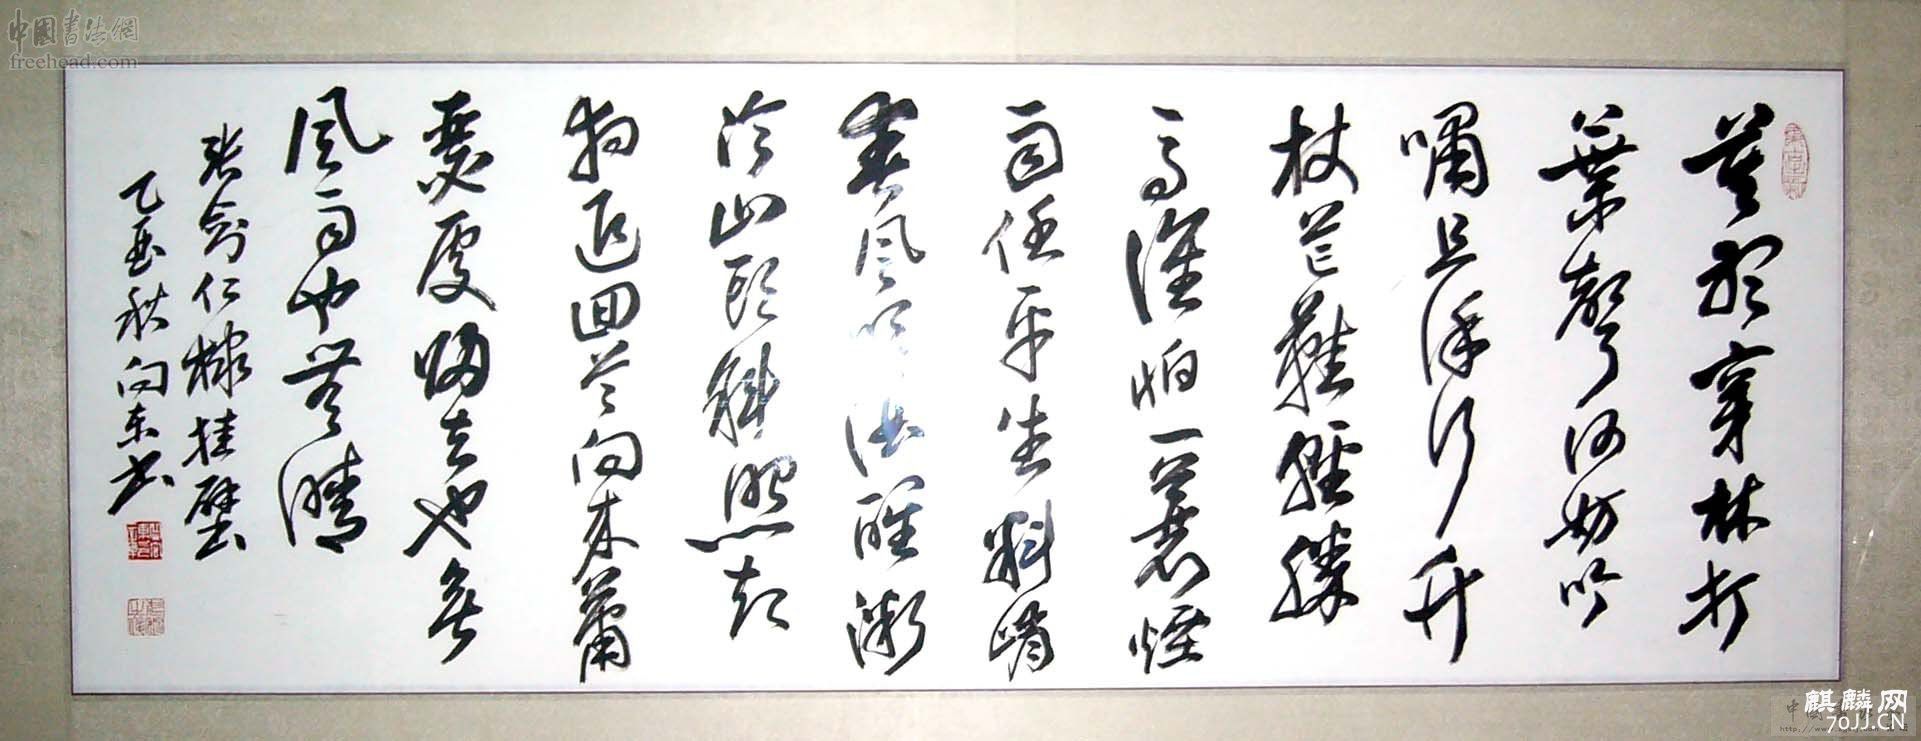 莫聽穿林打
葉聲何妨吟
嘯且徐行竹
杖芒鞋輕勝
馬誰怕一蓑煙
雨任平生料峭
春風吹酒醒微
冷山頭斜照却
相迎回首向來蕭
瑟處歸去也無
風雨也無晴
張劍仁棣挂壁
乙酉秋向東书
中國書法網
freehead.com
麒麟网
70JJ.CN